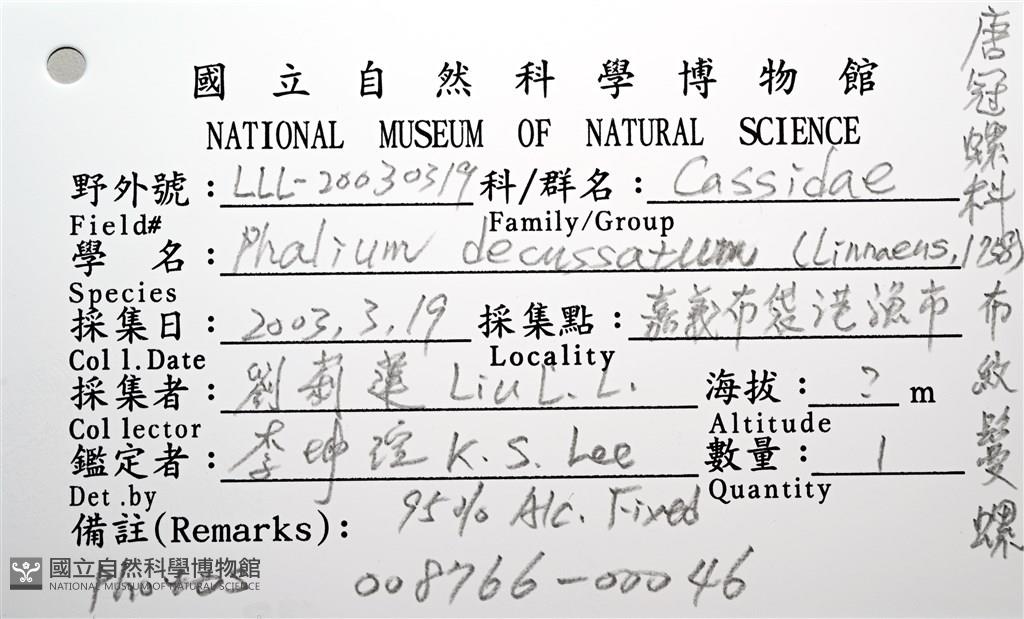 國立自然科學博物館
NATIONAL MUSEUM OF NATURAL SCIENCE
野外號：LLL-20030319 科/群名：Cassidae
Field# Family/Group
學 名：Phalium decussatum (Linnaeus, 1758)
Species
採集日：2003.3.19 採集點：嘉義布袋港漁市
Coll.Date Locality
採集者：劉莉蓮 Liu L. L. 海拔：? m
Collector Altitude
鑑定者：李坤瑄 K. S. Lee 數量：1
Det.by Quantity
備註(Remarks)： 95% Alc. Fixed
008766-00046
唐冠螺科
布紋鬘螺
國立自然科學博物館
NATIONAL MUSEUM OF NATURAL SCIENCE